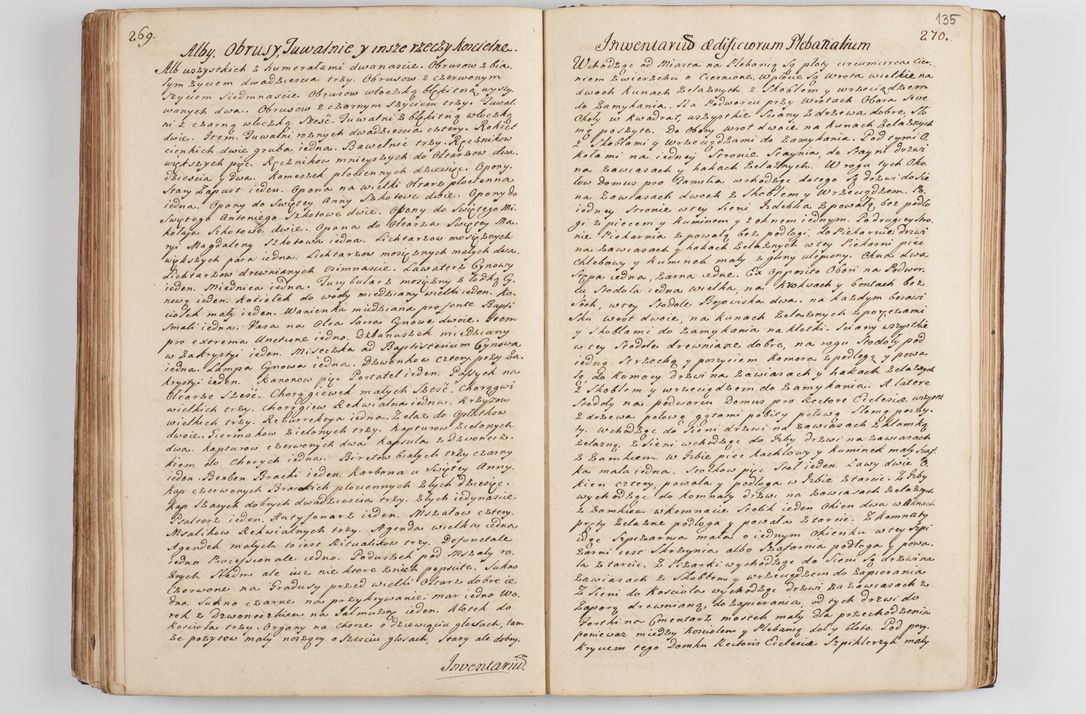 269.
Alby, Obrusy, Tuwalnie y insze rzeczy kościelne.
Alb wszystkich z humerałami dwanaście. Obrusow z bia-
łym szyciem dwadzieścia trzy. Obrusow z czerwonym
szyciem siedmnaście. Obrusow włoczką błękitną wyszy-
wanych dwa. Obrusow z czarnym szyciem trzy. Tuwal-
ni z czarną włoczką sześć. Tuwalni z błękitną włoczką
dwie. Item Tuwalni roznych dwadzieścia cztery.
cienkich dwie gruba iedna. Bawełnic trzy. Ręcznikow
większych pięć. Ręcznikow mnieyszych do Ołtarzow dwa-
dzieścia y dwa. Komeszek płociennych dziewięć. Opony
Stary Zapust ieden. Opona na wielki Ołtarz płocienna
iedna. Opony do Swiętey Anny Szkotowe dwie. Opony do
Swiętego Antoniego Szkotowe dwie. Opony do Swiętego Mi-
kołaia Szkotowe dwie. Opona do Ołtarza Swiętey Ma-
ryi Magdaleny Szkotowa iedna. Lichtarzow mosiężnych
większych para iedna. Lichtarzow mosiężnych małych dwa.
Lichtarzow drewnianych ośmnaście. Lawaterz Cynowy
ieden. Miednica iedna. Turybularz mosiężny z łodką Cy-
nową ieden. Kociełek do wody miedziany wielki ieden. Ko-
ciołek mały ieden. Wanienka miedziana pro fonte Bapti-
smali iedna. Vasa na Olea Sacra Cynowe dwoie. Item
pro extrema Unctione iedno. Dzbanuszek miedziany
w Zakrystyi ieden. Miseczka ad Baptisterium Cynowa
iedna. Lampa Cynowa iedna. Dzwonkow cztery przy Za-
krystyi ieden. Kanonow pięć Portatel ieden. Pasyek na
Ołtarze sześć. Chorągiewek małych sześć. Chorągwi
wielkich trzy. Chorągiew Rekwialna iedna. Krzyżow
wielkich trzy. Resurrekcya iedna. Żelaz do Opłatkow
dwoie. Siermakow zielonych trzy. Kapturow zielonych
dwa. Kapturow czerwonych dwa Kapsuła z Dzwonecz-
kiem do Chorych iedna. Biretow białych trzy czarny
ieden. Bemben Bracki ieden. Karbona u Swiętey Anny.
Kap czerwonych Brackich płociennych złych dziesięć.
Kap szarych dobrych dwadzieścia trzy. Złych iedynaście.
Psałterz ieden. Antyfonarz ieden. Mszałow cztery.
Mszalikow Rekwialnych trzy. Agenda wielka iedna
Agendek małych to iest Rituałikow trzy. Defunctale
iedno Processionale iedno. Poduszek pod Mszały ro-
żnych siedm ale iuż nie ktore znich popsute. Sukno
Czerwone na Gradusy przed wielki Ołtarz dobre ie-
dno. Sukno czarne na przykrywanie mar iedno Wo-
rek z Dzwoneczkiem na Jałmużnę ieden. Kłotek do
Kościoła trzy. Organy na chorze o dziewięciu głosach, tam-
że pozytyw mały noszący o sześciu głosach, Stary ale dobry.
Inventariũ.
135
270.
Inwentariũ ædificiorum Plebanalium
Wchodząc od Miasta na Plebanią Są płoty circumcirca Cier-
niem zwierzchu o Ciernione, Wpłocie Są wrota wielkie na
dwoch kunach Żelaznych z Skoblem y wrzeciądzem
do zamykania. Na Podworcu przy wrotach Obora
w kwadrat, wszystkie Sciany z drzewa dobre, Sło-
mą poszyte. Do Obory wrot dwoie na kunach Żelaznych
z Skoblami y Wrzeciądzami do zamykania. Pod tymi O-
kołami na iedney Stronie Staynia, do Stayni drzwi
na zawiasach y hakach Żelaznych. W rogu tych Oko-
łow Domus pro Familia wchodząc do tego Są drzwi dobre
na zawiasach dwoch z Skoblem y Wrzeciądzem. Po
iedney Stronie wtey Sieni Izdebka z powałą, bez podło-
gi z piecem y kuminem y z oknem iednym. Po drugiey stro-
nie Piekarnia z powałą bez podłogi. Do Piekarnie drzwi
na zawiasach y hakach Żelaznych wtey Piekarni piec
Chlebowy y kuminek mały z gliny ulepiony. Okna dwa
Szopa iedna, Żarna iedne. Ex opposito Obori na Podwor-
cu Stodoła iedna wielka, na Krokwach y bontach bez
Soch, wtey Stodole Boiowiska dwa. na każdym boiowi-
sku wrot dwoie, na kunach Żelaznych z poręczami
y Skoblami do zamykania na kłotki. Sciany wszystkie
w tey Stodole drewniane dobre, na rogu Stodoły pod
iedną Strzechą y poszyciem komora z podłogą y powa-
łą do komory drzwi na zawiasach y hakach Żelaznych
z Skoblem y wrzeciądzem do zamykania. A latere
Stodoły na podworcu Domus pro Rectore Ecclesiæ wszystek
z drzewa połowę gątami pobity połowę Słomą poszy-
ty. Wchodząc do Sieni drzwi na zawiasach z klamką
Żelazną. Z Sieni wchodząc do Izby drzwi na zawiasach
z Zamkiem. W Izbie piec kachlowy y kuminek mały Szaf-
ka mała iedna. Stołkow pięć Stoł ieden. Lawy dwie O-
kien cztery, powała y podłoga w Izbie z tarcic. Z Izby
wychodząc do komnaty drzwi na zawiasach Żelaznych
z Zamkiem wkomnacie Stolik ieden Okien dwa w oknach
pręty Żelazne podłoga y powała z tarcic. Z komnaty
idąc Spiżarnia mała o iednym okienku wtey Spi-
żarni iest Skrzynia albo Szafarnia podłoga y powa-
ła z tarcic. Z Pisarki wychodząc do Sieni Są drzwi na
zawiasach z Skoblem y wrzeciądzem do zapierania
Z Sieni do Kościoła wychodząc drzwi na zawiasach z
zaporą drewnianą, do zapierania, od tych drzwi do
Fortki na Cmentarz mostek mały dla przechodzenia
ponieważ między kościołem y Plebanią doły y błoto. Pod przy-
kryciem tego Domku Rectoris Ecclesiæ Szpiklerzyk mały